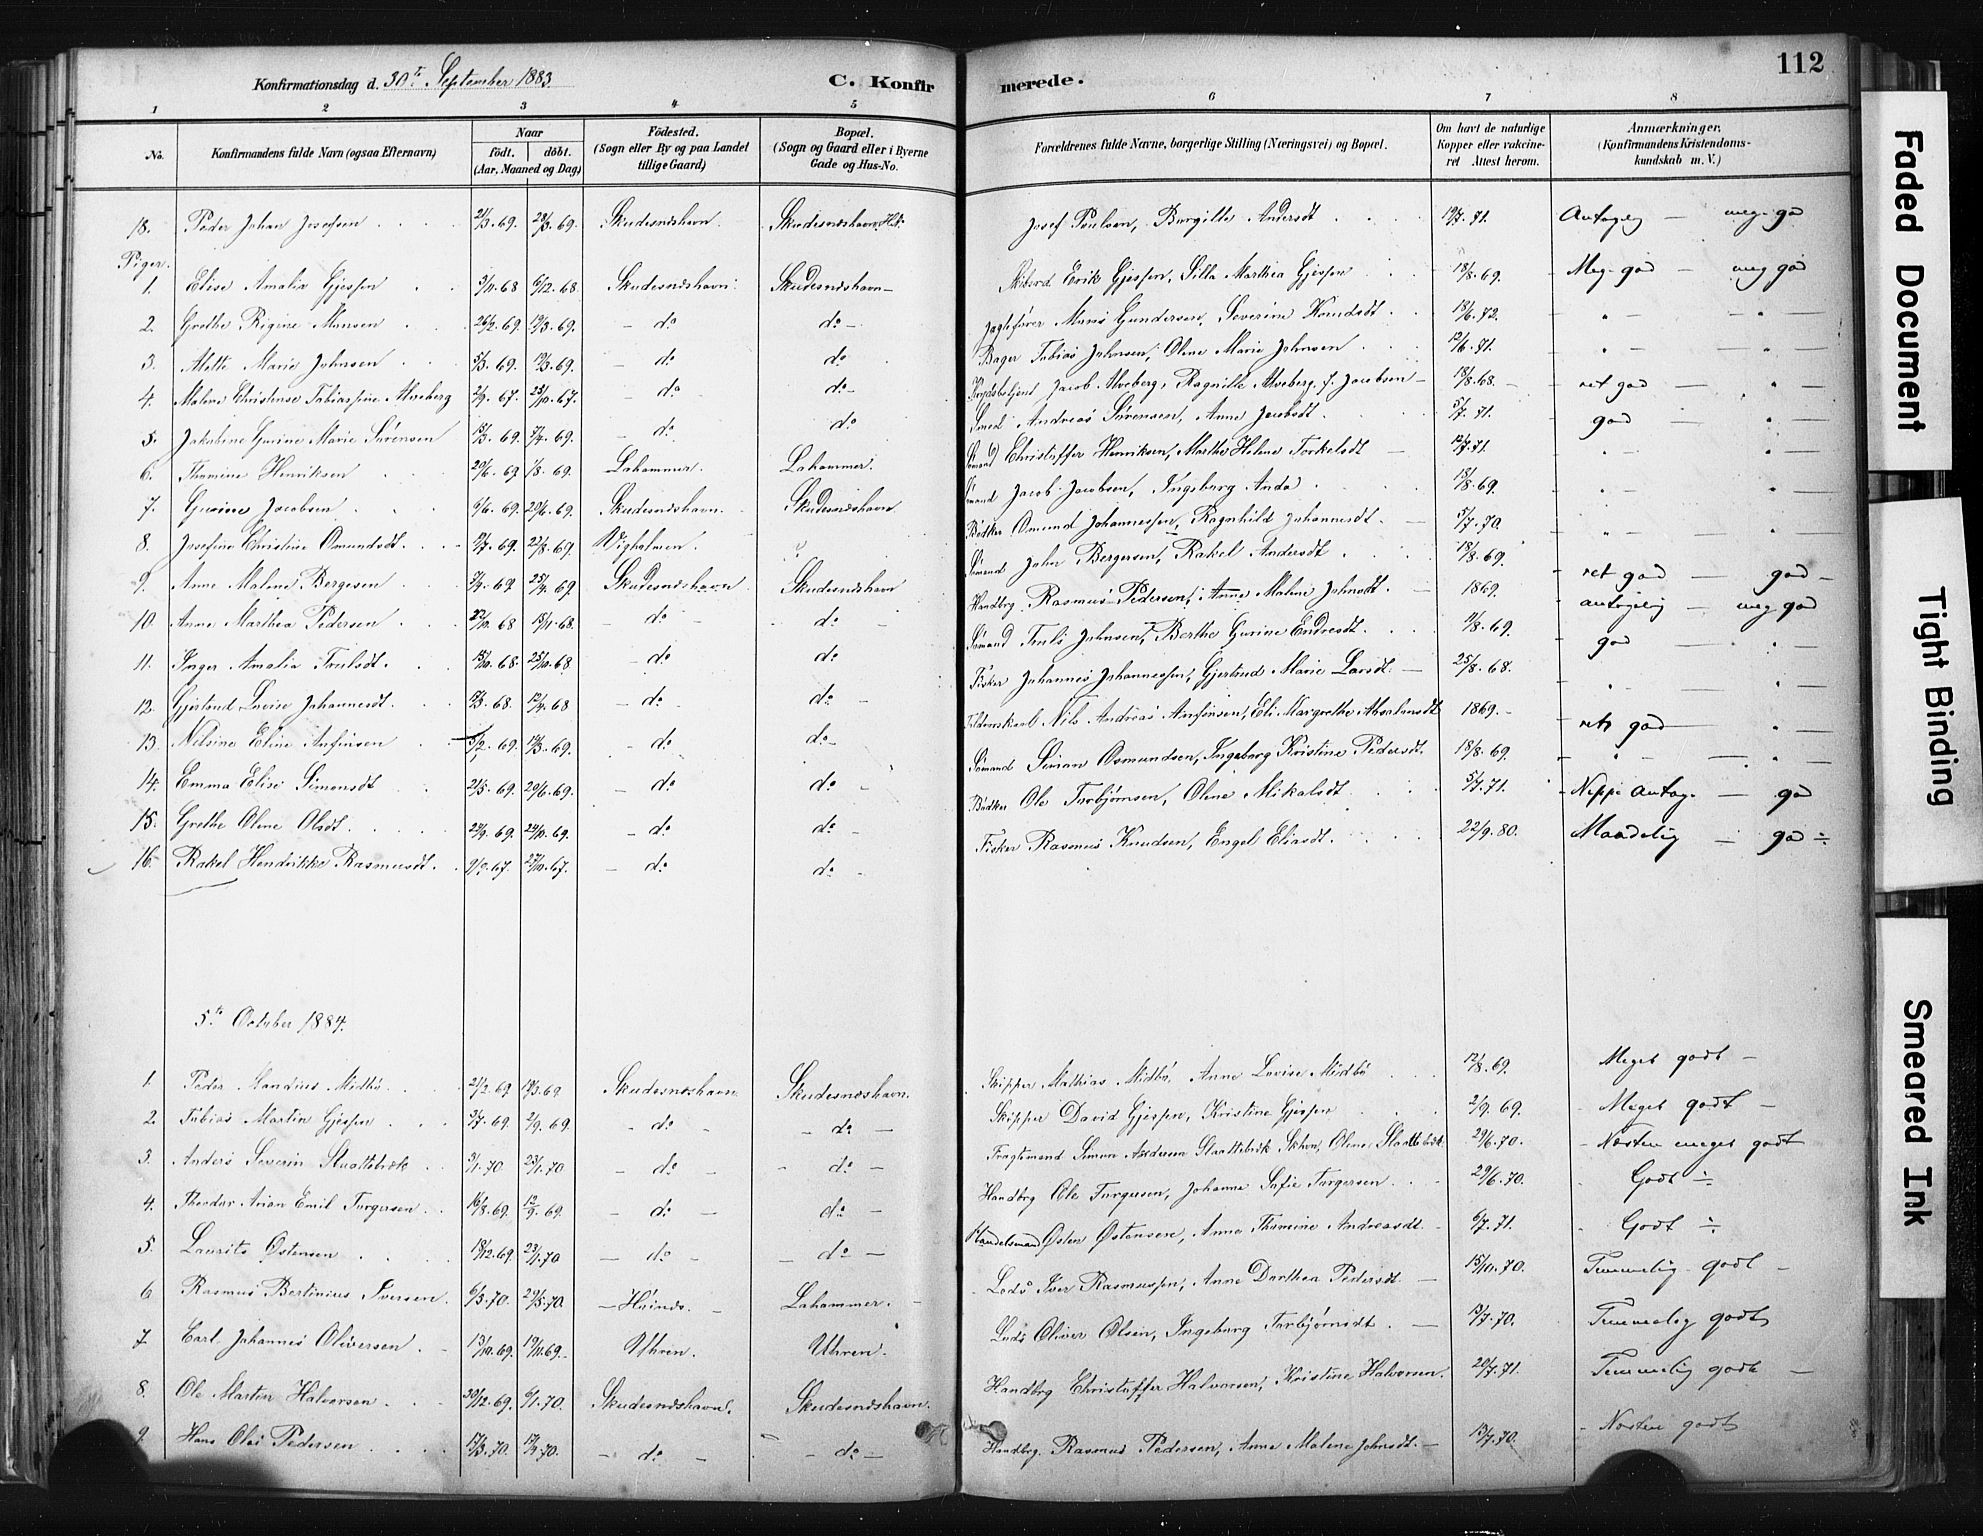 112
Konfirmationsdag d. 30te September 1883
C. Konfirmerede.
1 2 3 4 5 6 7 8
No. Konfirmandens fulde Navn (ogsaa Efternavn) Naar födt. döbt. (Aar, Maaned og Dag) Födested. (Sogn eller By og paa Landet tillige Gaard) Bopæl. (Sogn og Gaard eller i Byerne Gade og Hus-No. Forældrenes fulde Navne, borgerlige Stilling (Næringsvei) og Bopæl. Om havt de naturlige Kopper eller vakcineret Attest herom. Anmærkninger. (Konfirmandens Kristendomskundskab m. V.)
18. Peder Johan Josefsen 21/3. 69. 28/3. 69. Skudesnæshavn. Skudesnæshavn Josef Poulsen, Burgitte Andersdt 19/7. 71. Antagelig — meg. god
Piger.
1. Elise Amalia Gjessen 3/11. 68 6/12. 68. Skudesnæshavn. Skudesnæshavn — Erik Gjessen, Silla Marthea Gjessen 18/8. 69. Meg. god — meg god
2. Grethe Regine Mansen 26/2. 69. 19/3. 69. — do do — Jagtefører Mans Gundersen, Severine Knudsdt 13/6. 72. " — " —
3. Mette Marie Johnsen 5/3. 69. 19/3. 69. — do do Bager Tobias Johnsen, Oline Marie Johnsen 12/6. 71. " — " —
4. Malene Christense Tobiassine Alveberg 2/9. 67. 25/10. 67. — do do — Jacob Alveberg, Ragnille Alveberg f. Jacobsen 18/8. 68. ret god — " —
5. Jakobine Gurine Marie Sörensen 15/3. 69. 7/4. 69. — do do Smed Andreas Sörensen, Anne Jacobsdt. 5/7. 71. god — " —
6. Thomine Henriksen 20/6. 69 1/8. 69. Lahammer. Lahammer. Sömand Christoffer Henriksen, Marthe Helene Torkelsdt 12/7. 71. " — " —
7. Gurine Jacobsen 6/6. 69. 20/6. 69. Skudesnæshavn. Skudesnæshavn Sömand Jacob Jacobsen, Ingeborg Anda 18/8. 69. " — " —
8. Josefine Christine Omundsdt. 12/7. 69. 22/8. 69. Vigholmen. " Bödker Omund Johannessen, Ragnhild Johannesdt. 5/7. 70. " — " —
9. Anne Malene Bergesen 3/4. 69 25/4. 69. Skudesnæshavn Skudesnæshavn Sömand John Bergersen, Rakel Andersdt 18/8. 69. ret god — god —
10. Anne Marthea Pedersen 22/10. 68 15/11. 68. — do — do — Handbrg. Rasmus Pedersen, Anne Malene Johnsdt. 1869. antagelig — meg god
11. Inger Amalia Trulsdt. 15/10. 68. 25/10. 68. — do do Sömand Truls Johnsen, Berthe Gurine Endresdt. 11/8. 69. god — " —
12. Gjertrud Lovise Johannesdt. 17/3. 68. 12/4. 68 — do do — Fisker Johannes Johannessen, Gjertrud Marie Larsdt. 25/8. 68. " — " —
13. Nilsine Eline Anfinsen 5/2. 69. 19/3. 69. — do do — Nils Andreas Anfinsen, Eli Margrethe Absalonsdt 1869. — ret god — " —
14. Emma Elise Simonsdt 21/5. 69. 20/6. 69. — do do — Sömand Simon Osmundsen, Ingeborg Kristine Pedersdt. 18/8. 69. " — " —
15. Grethe Oline Olsdt. 29/9. 69. 24/10. 69. — do do — Bödker Ole Torbjörnsen, Oline Mikalsdt 5/7. 71. Neppe Antag. — god
16. Rakel Hendrikke Rasmusdt. 9/9. 67. 27/10. 67. — do do — Fisker Rasmus Knudsen, Engel Eliasdt. 22/9. 80. Maadelig — god ÷
5te October 1884.
1. Peder Mandius Midbö 21/2. 69 19/3. 69 Skudesnæshavn Skudesnæshavn. Skipper Mathias Midbö, Anne Lovise Midbö 12/8. 69. Meget godt —
2. Tobias Martin Gjessen 27/7. 69. 2/9. 69. — do — — do — Skipper David Gjessen, Kristine Gjessen 2/9. 69. Meget godt —
3. Anders Severin Slaattebræk 3/1. 70 23/1. 70 — do — — do — Fragtemand Simon Andersen Slaattebræk Skhvn, Oline Slaattebræk 29/6. 70. Næsten meget godt
4. Theodor Arian Emil Torgersen 16/8. 69. 12/9. 69. — do — do — Handbrg Ole Torgersen, Johanne Sofie Torgersen 29/6. 70. Godt ÷
5. Laurits Østensen 18/12. 69. 23/1. 70 — do — — do — Handelsmand Østen Østensen, Anne Thomine Andreasdt. 6/7. 71. Godt ÷
6 Rasmus Bertinius Iversen. 6/3. 70. 29/5. 70. Lahammer. Lods Iver Rasmussen, Anne Dorthea Pedersdt. 15/10. 70. Temmelig godt —
7. Carl Johannes Oliversen 13/10. 69. 19/11. 69. Uhren. Uhren. Lods Oliver Olsen, Ingeborg Torbjörnsdt. 13/7. 70. Temmelig godt
8. Ole Martin Halvorsen 30/12. 69. 6/1. 70. Skudesnæshavn. Skudesnæshavn. Handbrg Christoffer Halvorsen, Kristine Halvorsen. 20/7. 71. Temmelig godt —
9. Hans Olai Pedersen 17/3. 70. 17/4. 70. — do — — do — Handbrg. Rasmus Pedersen, Anne Malene Johnsdt. — 13/7. 70. Næsten godt
Faded Document
Tight Binding
Smeared Ink